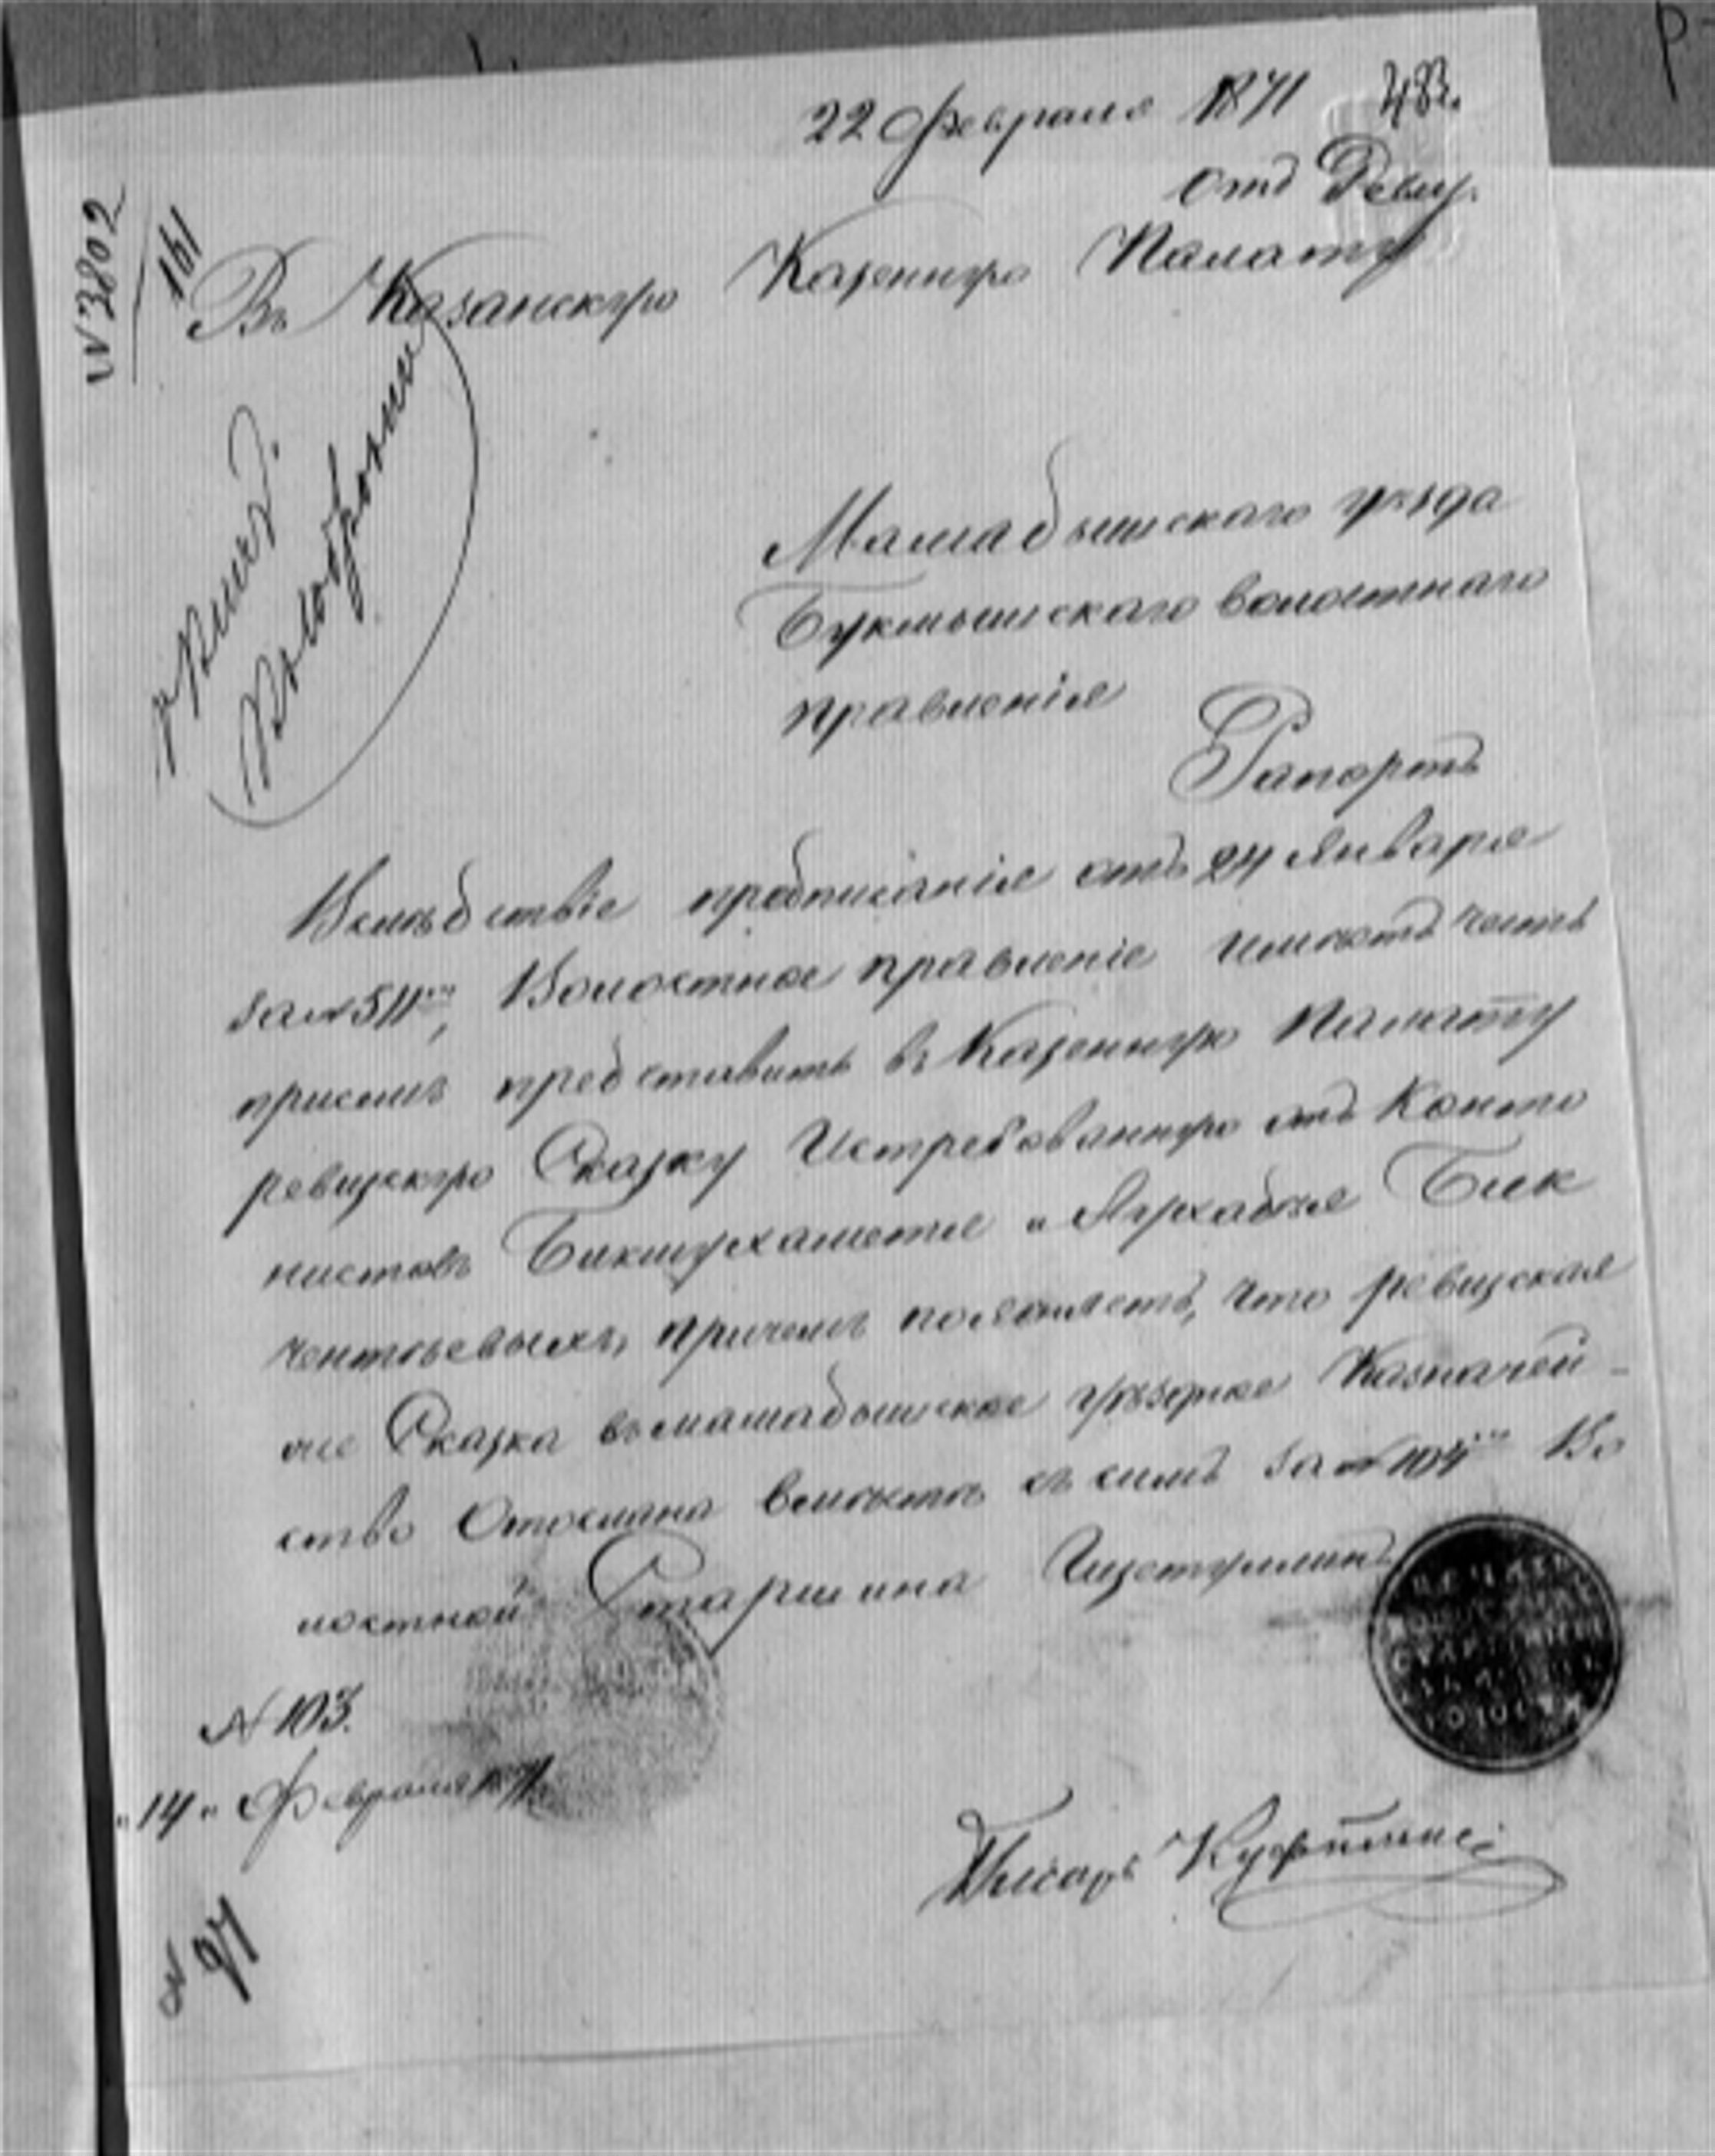 22 Февраля 1871 483.
Отд Ревиз.
№ 3802
161
Въ Казанскую Казенную Палату
Мамадышскаго уѣзда
Букмышскаго волостнаго
правленія
Рапортъ
Вслѣдствіе предписанія отъ 24 Января
за № 511м, Волостное правленіе имѣетъ честь
присемъ представить въ Казенную Палату
ревизскую Сказку Истребованную отъ Конто
нистовъ Бикмухаметя и
чентьевыхъ, причемъ поясняетъ, что ревизская
Сказка въ мамадышское уѣздное Казначей-
ство Отослана вмѣстѣ съ симъ за № 104м Во
лостной Старшина
№ 103.
"14" Февраля 1871
Писарь
№ 97